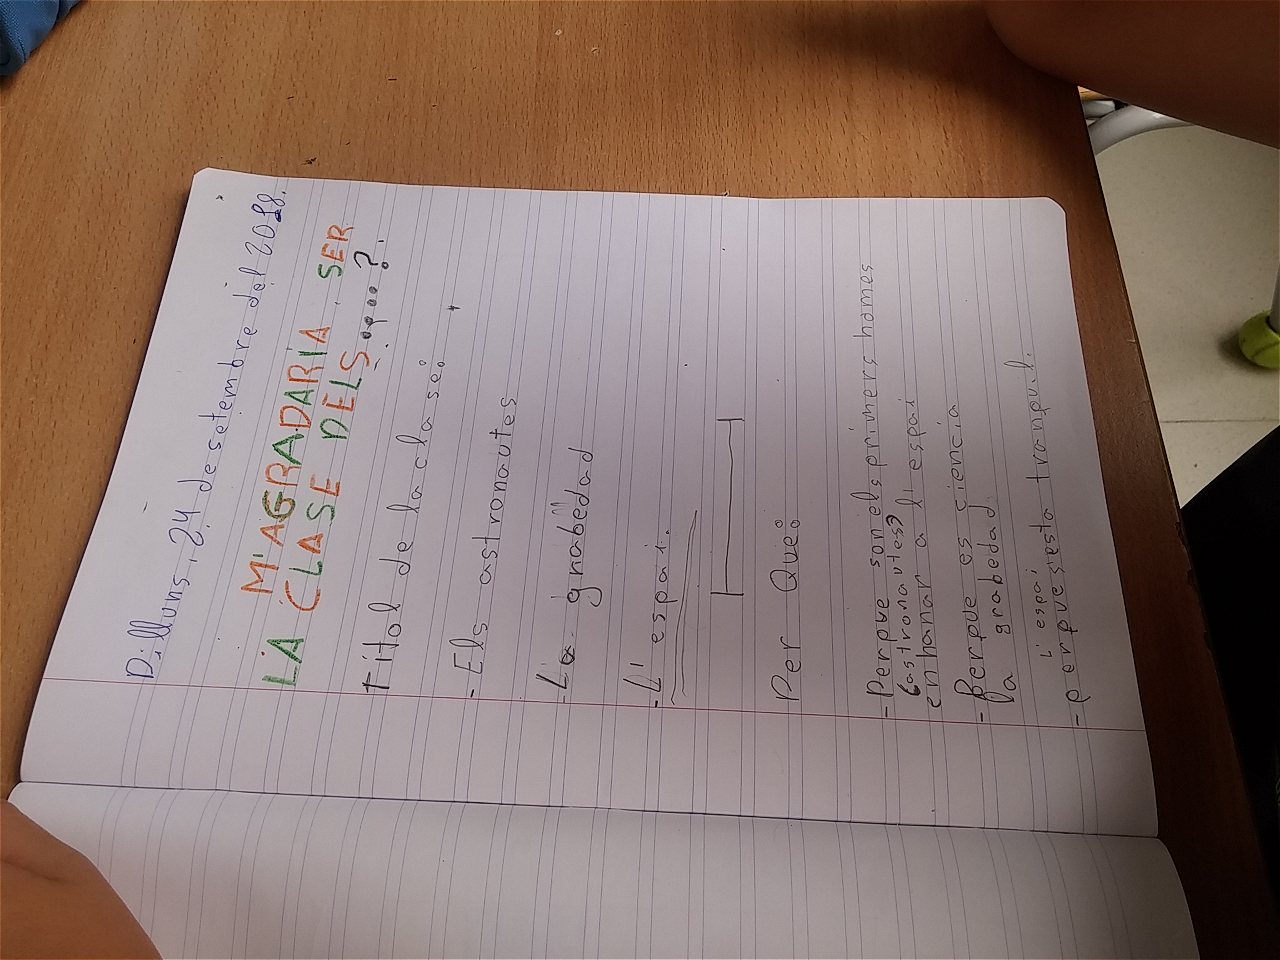 Dilluns, 24 de setembre del 2018.
M'AGRADARIA SER
LA CLASE DELS.....?
Titol de la clase:
- Els astronautes
- La grabedad
- L'espai.
Per Que:
- Perque son els primers homes
(astronautes)
en hanar a l espai
- perque es ciencia
la grabedad.
l' espai
- perque sesta tranquil.